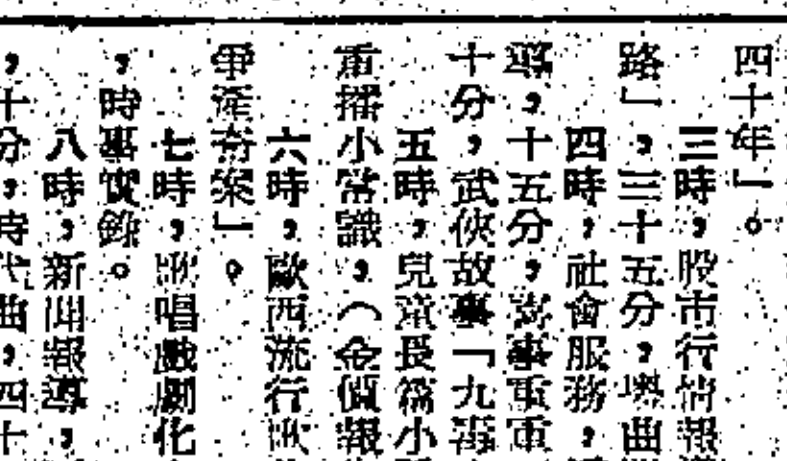 四十年」。
三時，股市行情報
路」，三十五分，粵曲
四時，社會服務，
導，十五分，賽事重軍
十分，武俠故事「九毒
五時，兒童長篇小
重播小常識，（金價報
六時，歐西流行歌
爭產奇案」。
七時，歌唱戲劇化
，時事實錄。
八時，新聞報導，
，十分，時代曲，四十